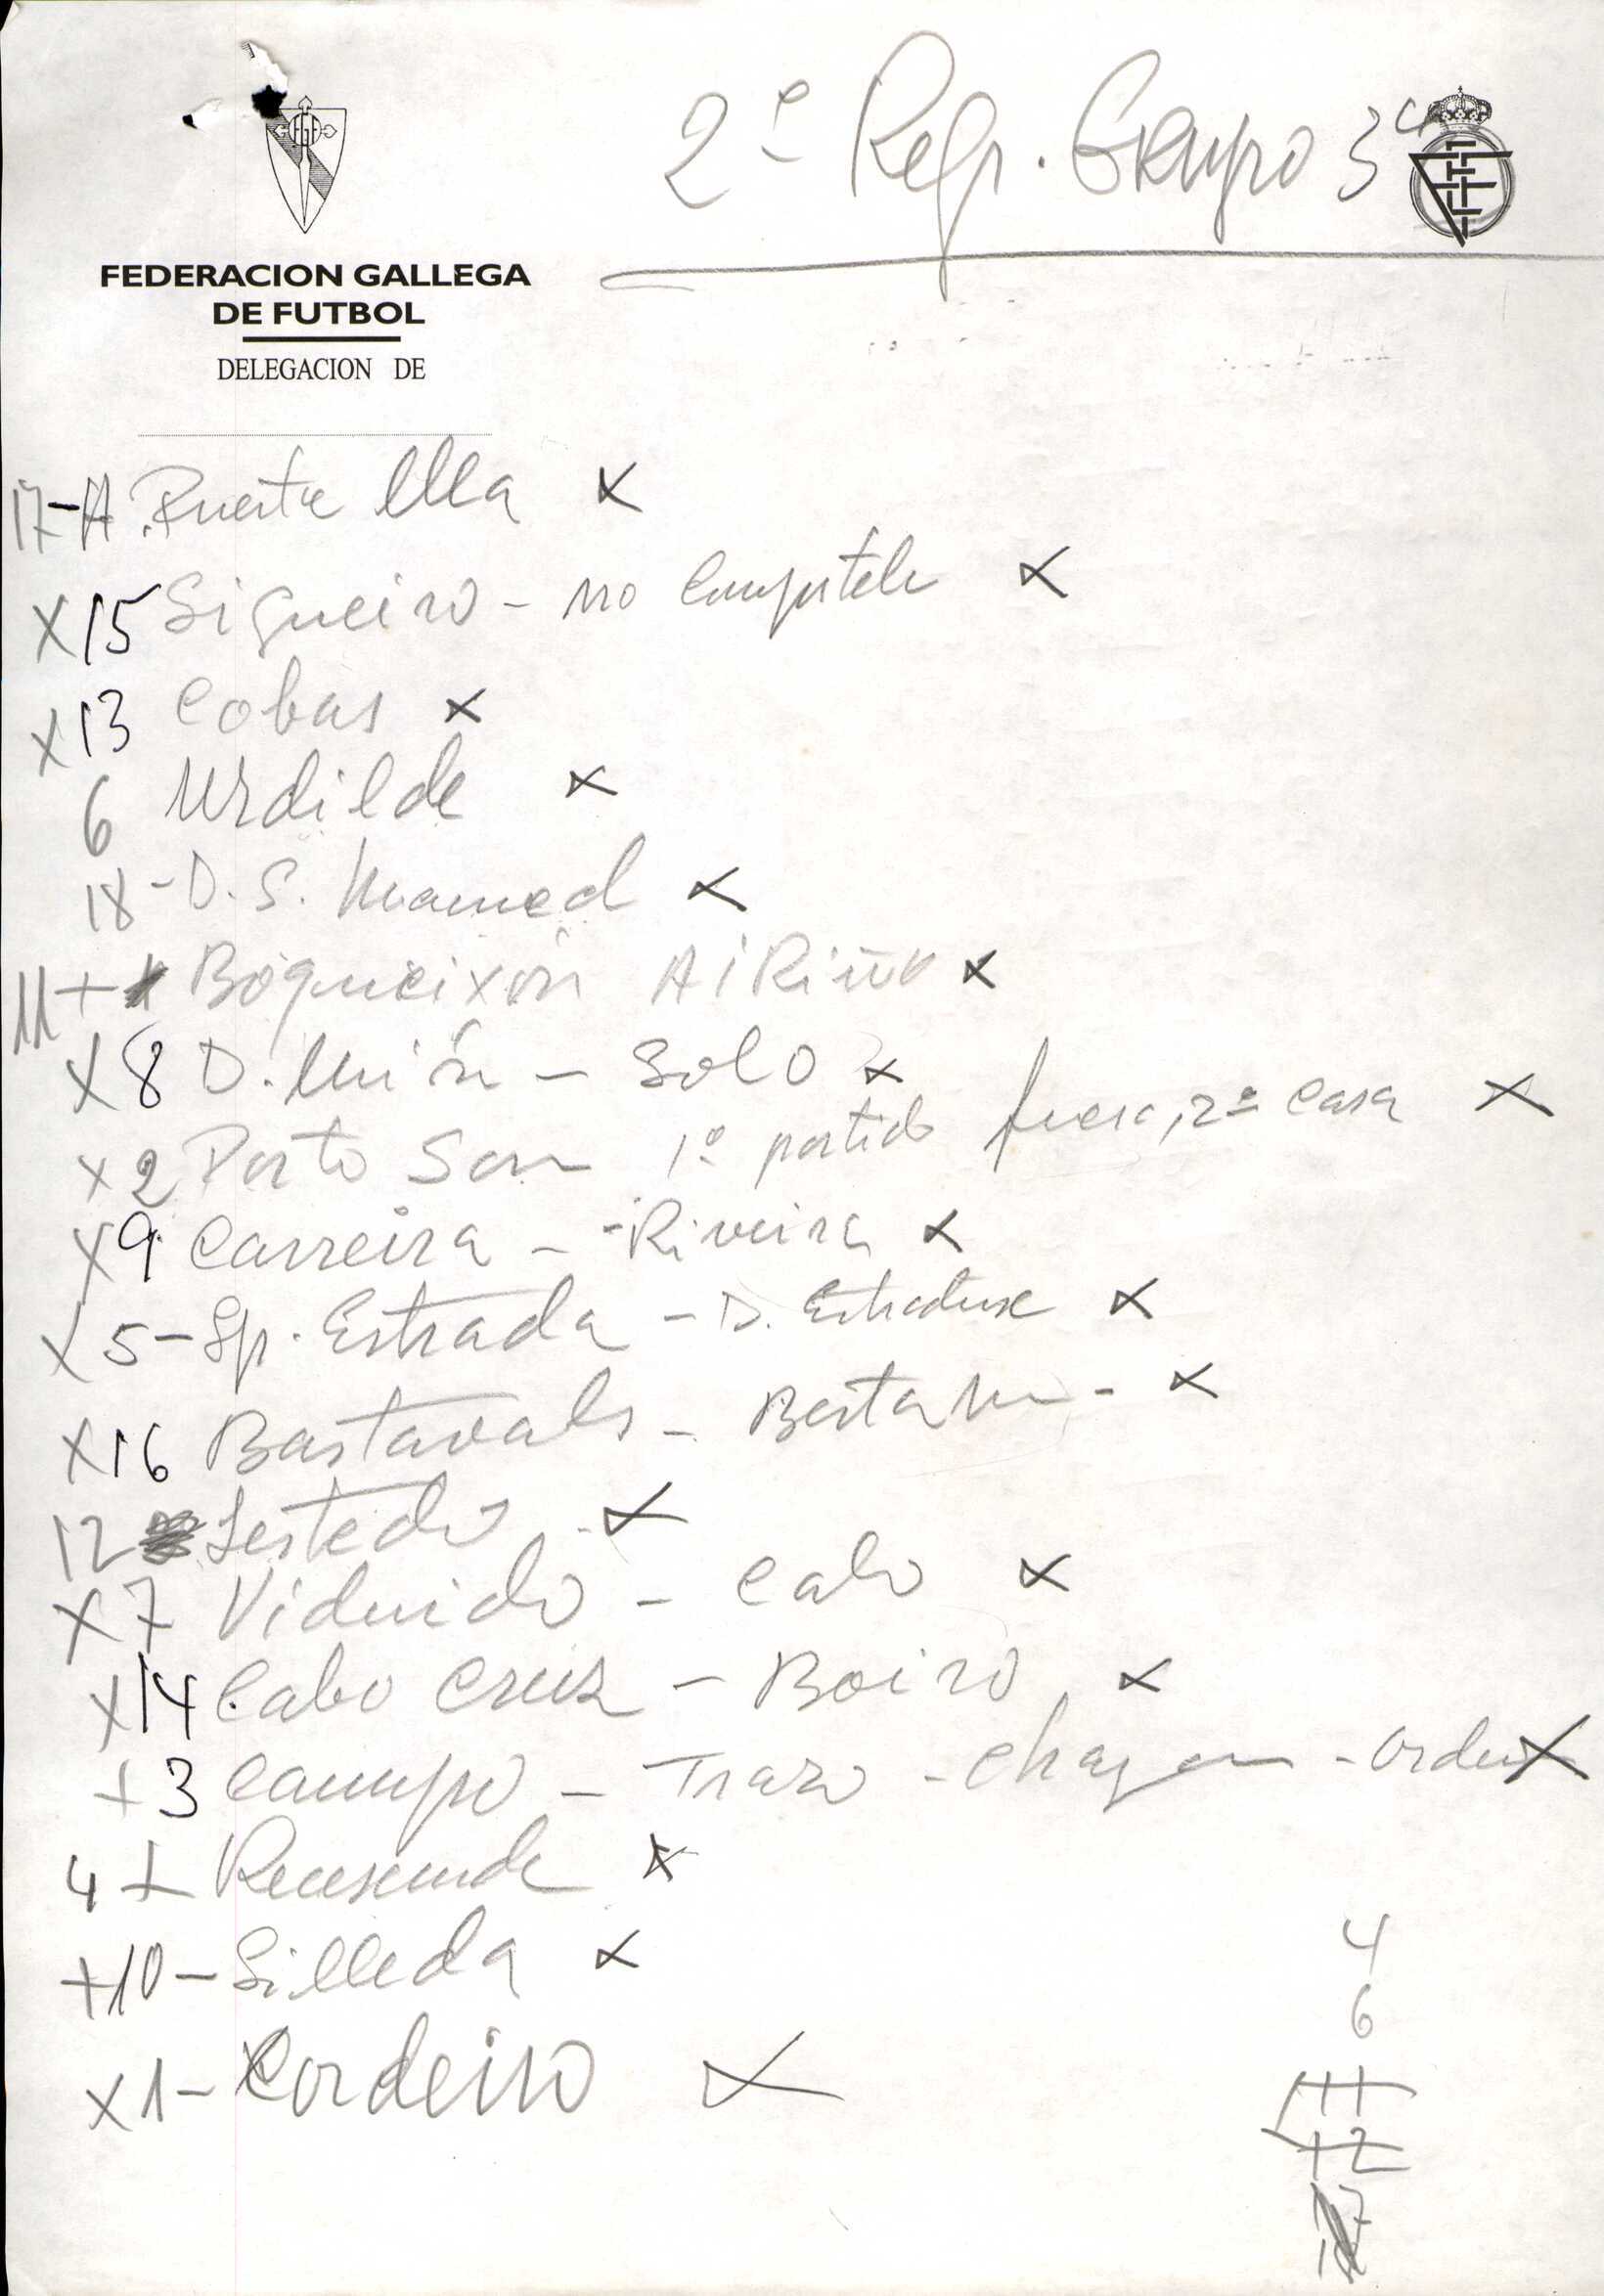 2ª Reg. Grupo 3º
FGF
FEDERACION GALLEGA
DE FUTBOL
DELEGACION DE
17-A. Puente Ulla x
X 15 Sigueiro - no Compostela x
x 13 Cobas x
6 Urdilde x
18 - D. S. Mamed x
11 + Boqueixón AIRIÑO x
X 8 D. Unión - Solo x
x 2 Porto Son 1º partido fuera, 2º casa x
X 9 Carreira - Riveira x
X 5 - Sp. Estrada - D. Estradense x
X 16 Bastavals - x
12 Lestedo x
X 7 Viduido - Calo x
X 14 Cabo Cruz - Boiro x
+ 3 Campo - Trazo - - Orden X
4 + Reesende x
+ 10 - Silleda x
x 1 - Cordeiro x
4
6
11
12
17
18